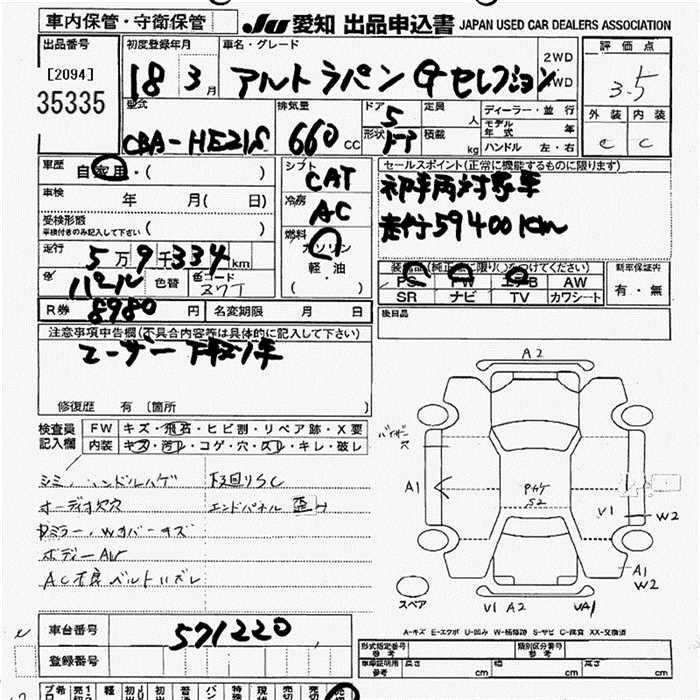 車内保管・守衛保管
JU 愛知 出品申込書 JAPAN USED CAR DEALERS ASSOCIATION
出品番号
[2094]
35335
初度登録年月
18 3 月
車名・グレード
アルトラパン Gセレクション
2WD
4WD
評価点
3.5
外装 内装
e c
型式
CBA-HE21S
排気量
660 CC
ドア 5
形状
定員 人
積載 kg
ディーラー・並行
モデル年式 年
ハンドル 左・右
車歴
自家用・( )
車検 年 月( 日)
受検形態
車検付きのみ記入して下さい ( )
走行
5万9千334km
色 パール 色替 色コード
R券 8980 円 名変期限 月 日
シフト
CAT
冷房
AC
燃料
ガソリン
軽・油
( )
セールスポイント(正常に機能するものに限ります)
初車両対象車
走行59400Km
装備品(純正品に限り○をつけてください)
PS PW エアB AW
SR ナビ TV カワシート
新車保証書
有・無
後日品
注意事項申告欄(不具合内容等は具体的に記入して下さい)
ユーザー下取り車
修復歴 有 〔箇所 〕
検査員記入欄
FW キズ・飛石・ヒビ割・リペア跡・X要
内装 キズ・汚レ・コゲ・穴・スレ・キレ・破レ
シミ、ハンドルハゲ 下回りSC
オーディオ欠穴 エンドパネル歪
ボディーAW
AC不良 ベルトハズレ
A2
バイザーズ
A1
V1
W2
A1
W2
スペア
V1 A2
UA1
A-キズ E-エクボ U-凹み W-補修跡 S-サビ C-腐食 XX-交換済
車台番号 571220
登録番号
形式指定番号 参考
類別区分番号 参考
車庫証明用 参考 長さ cm 幅 cm 高さ cm